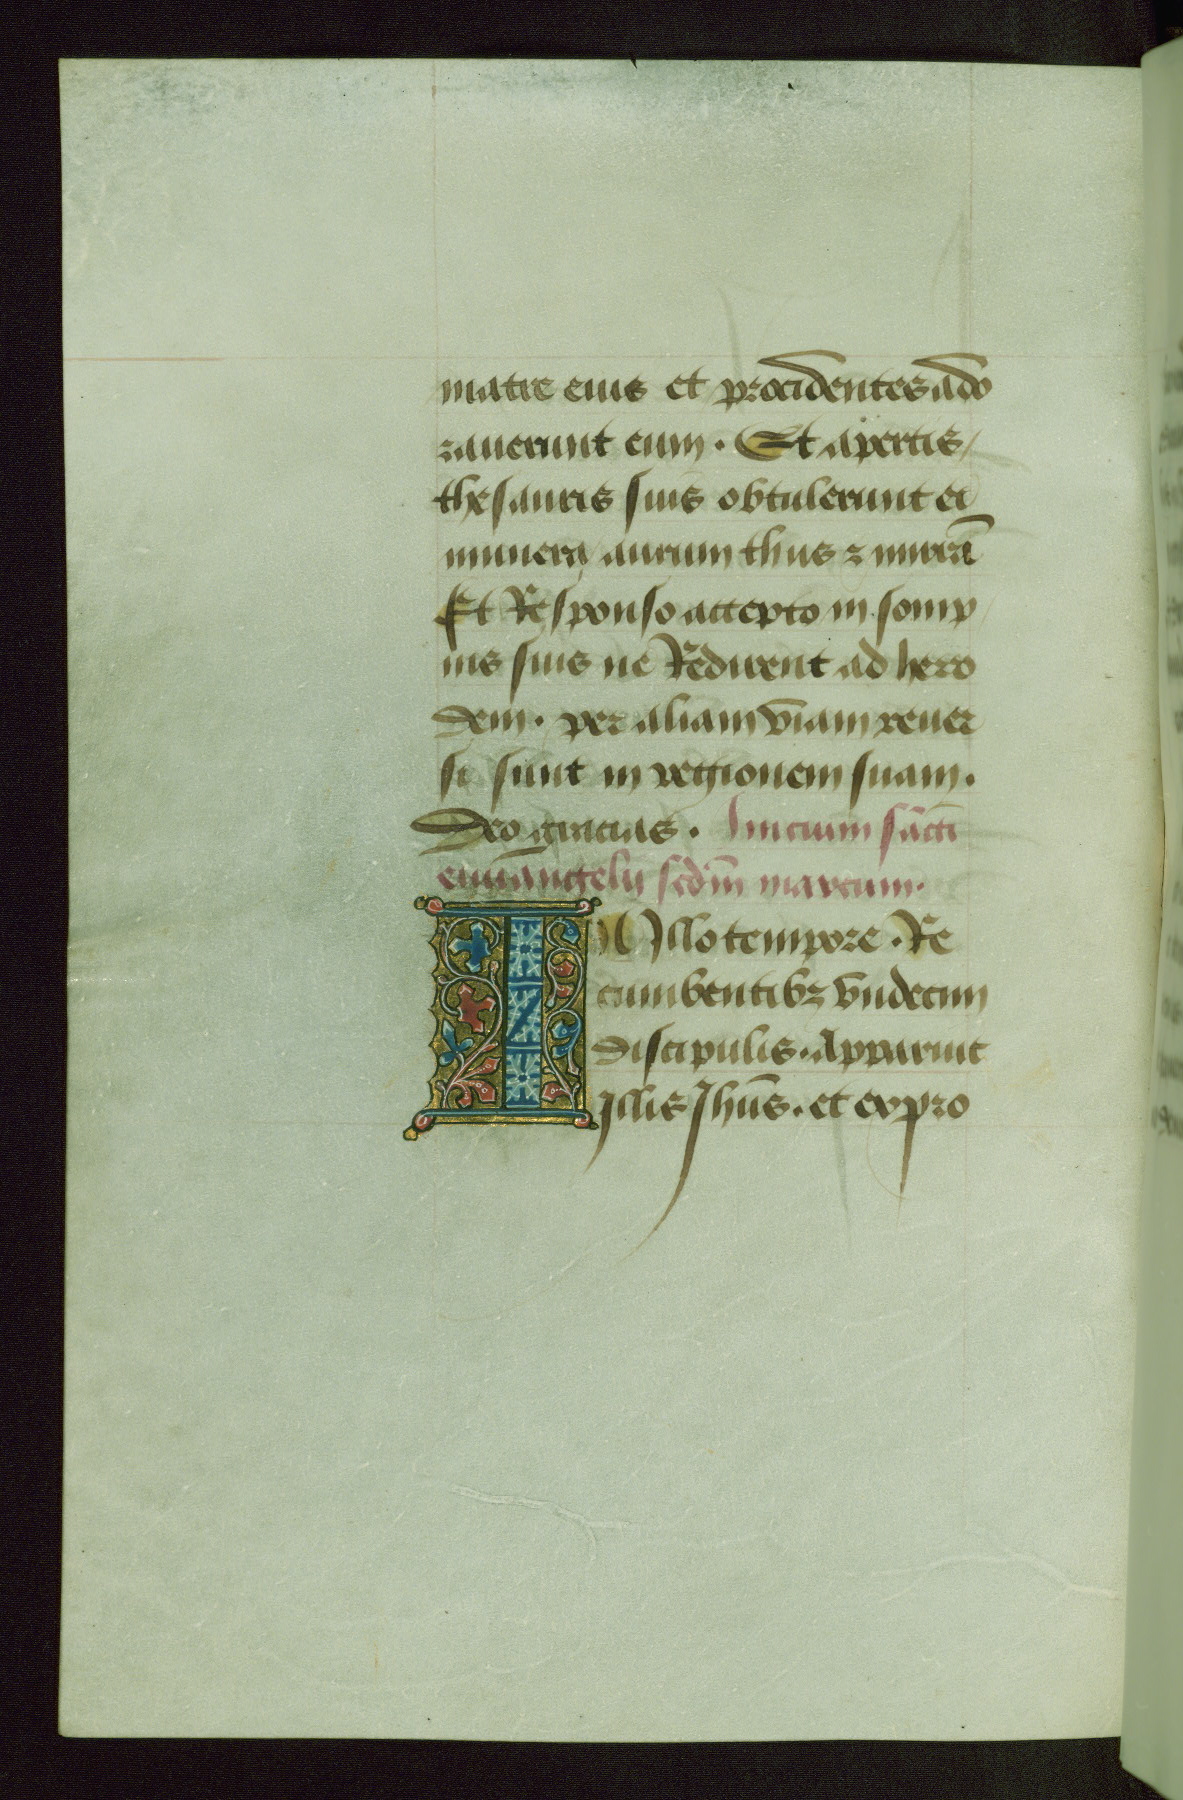 matre eius et procidentes ado
rauerunt eum. Et apertis/
thesauris suis obtulerunt ei
munera/ aurum thus ⁊ mirrā
Et Responso accepto in somp/
nis suis ne Redirent ad hero
dem. per aliam viam reuer
si sunt in regionem suam.
Deo gracias. Inicium sācti
euuāngelij scd̄m marcum.
IN Illo tempore. Re
cumbentibꝫ vndecim
discipulis. Apparuit
Illis Jhūs. et expro